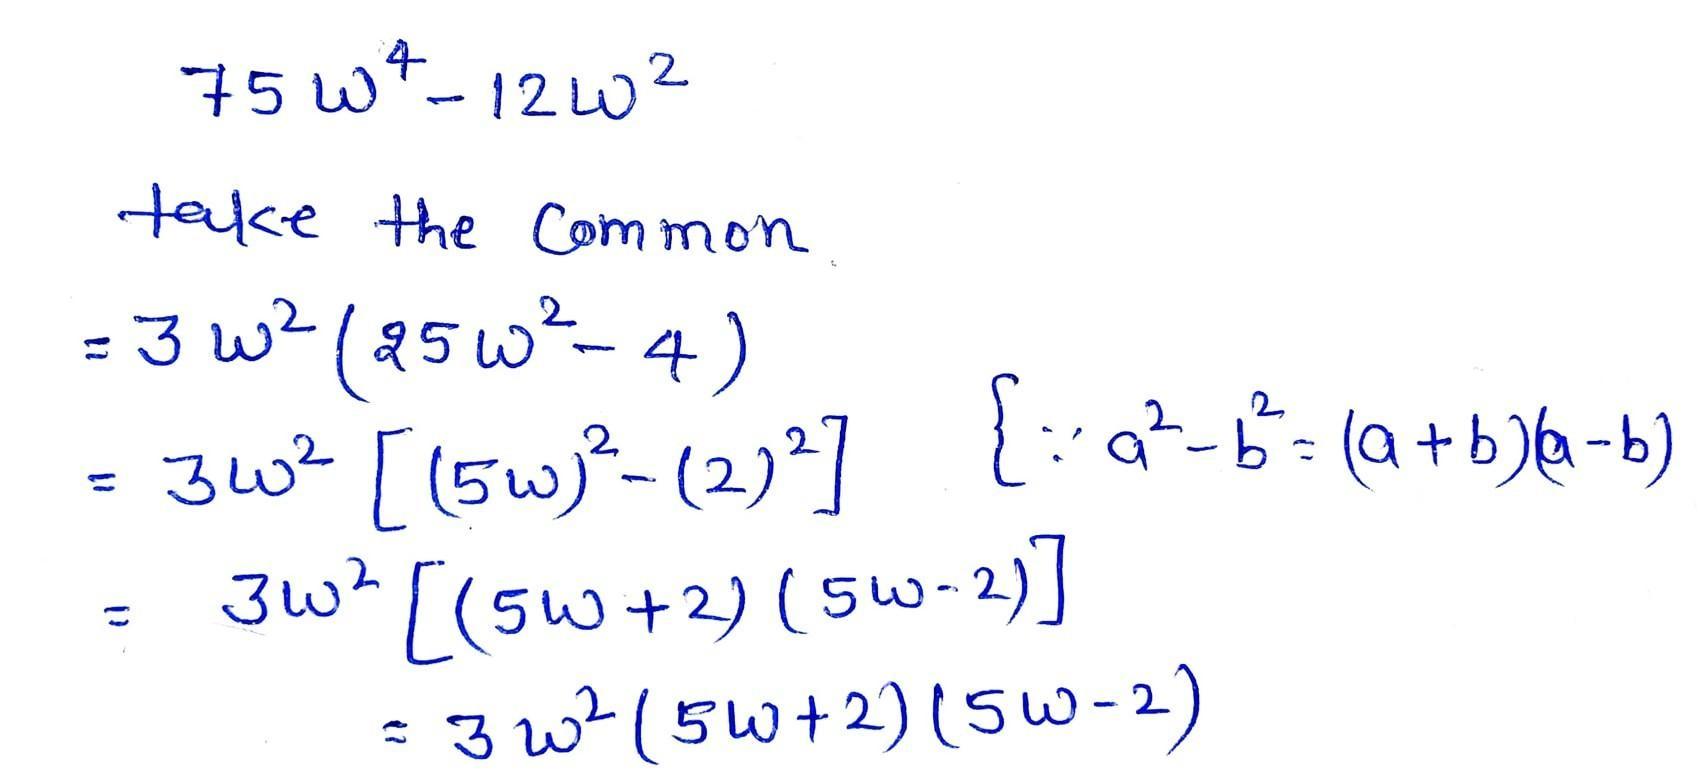 75w⁴ - 12w²
take the common
= 3w² (25w² - 4)
= 3w² [(5w)² - (2)²]   {∵ a² - b² = (a + b)(a - b)
= 3w² [(5w + 2) (5w - 2)]
= 3w² (5w + 2) (5w - 2)